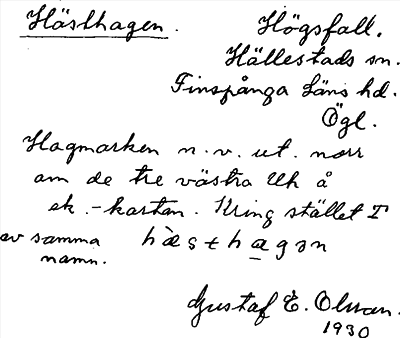 Hästhagen.
Högsfall.
Hällestads sn.
Finspånga läns hd.
Ögl.
Hagmarken n.v. ut. norr
om de tre västra Uh å
ek.-kartan. Kring stället T
av samma
namn.
hὰsthagən
Gustaf E. Olsson.
1930